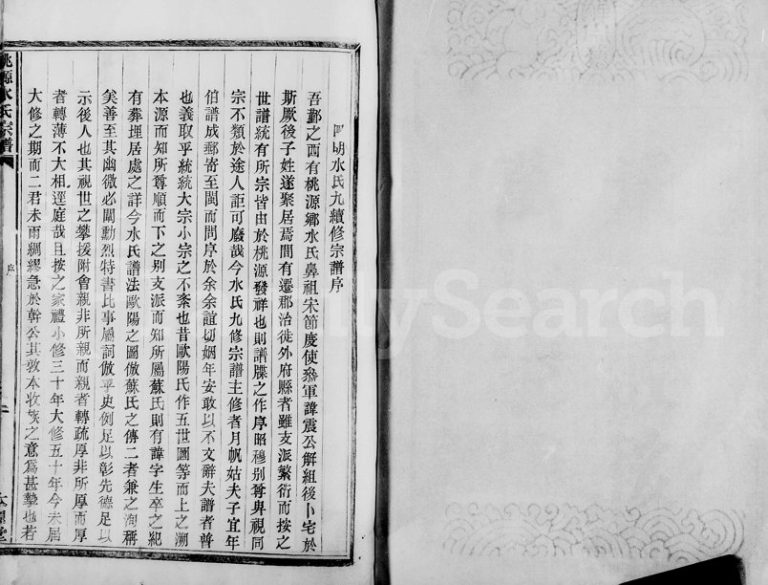 四明水氏九續修宗譜序
吾鄞之西有桃源鄉水氏鼻祖宋節慶使叅軍諱震公解組後卜宅於
斯厥後子姓遂聚居焉間有遷郡治徙外府縣者雖支派繁衍而按之
世譜統有所宗皆由於桃源發祥也則譜牒之作序昭穆別尊與視同
宗不類於途人詎可廢哉今水氏九修宗譜主修者月帆姑夫子宜年
伯譜成郵寄至閩而問序於余余誼切姻年安敢以不文辭夫譜者普
也義取乎統統大宗小宗之不紊也昔歐陽氏作五世圖等而上之溯
本源而知所尊順而下之別支派而知所屬蘇氏則有諱字生卒之紀
有葬埋居處之詳今水氏譜法歐陽之圖倣蘇氏之傳二者兼之洵稱
矣善至其幽微必闡勳烈特書比事屬詞倣乎史例足以彰先德足以
示後人也其視世之攀援附會親非所親而親者轉疏厚非所厚而厚
者轉薄不大相逕庭哉且按之家禮小修三十年大修五十年今未屆
大修之期而二君未雨綢繆急於幹公其敦本收族之意爲甚摯也若
桃源水氏宗譜
序
FamilySearch